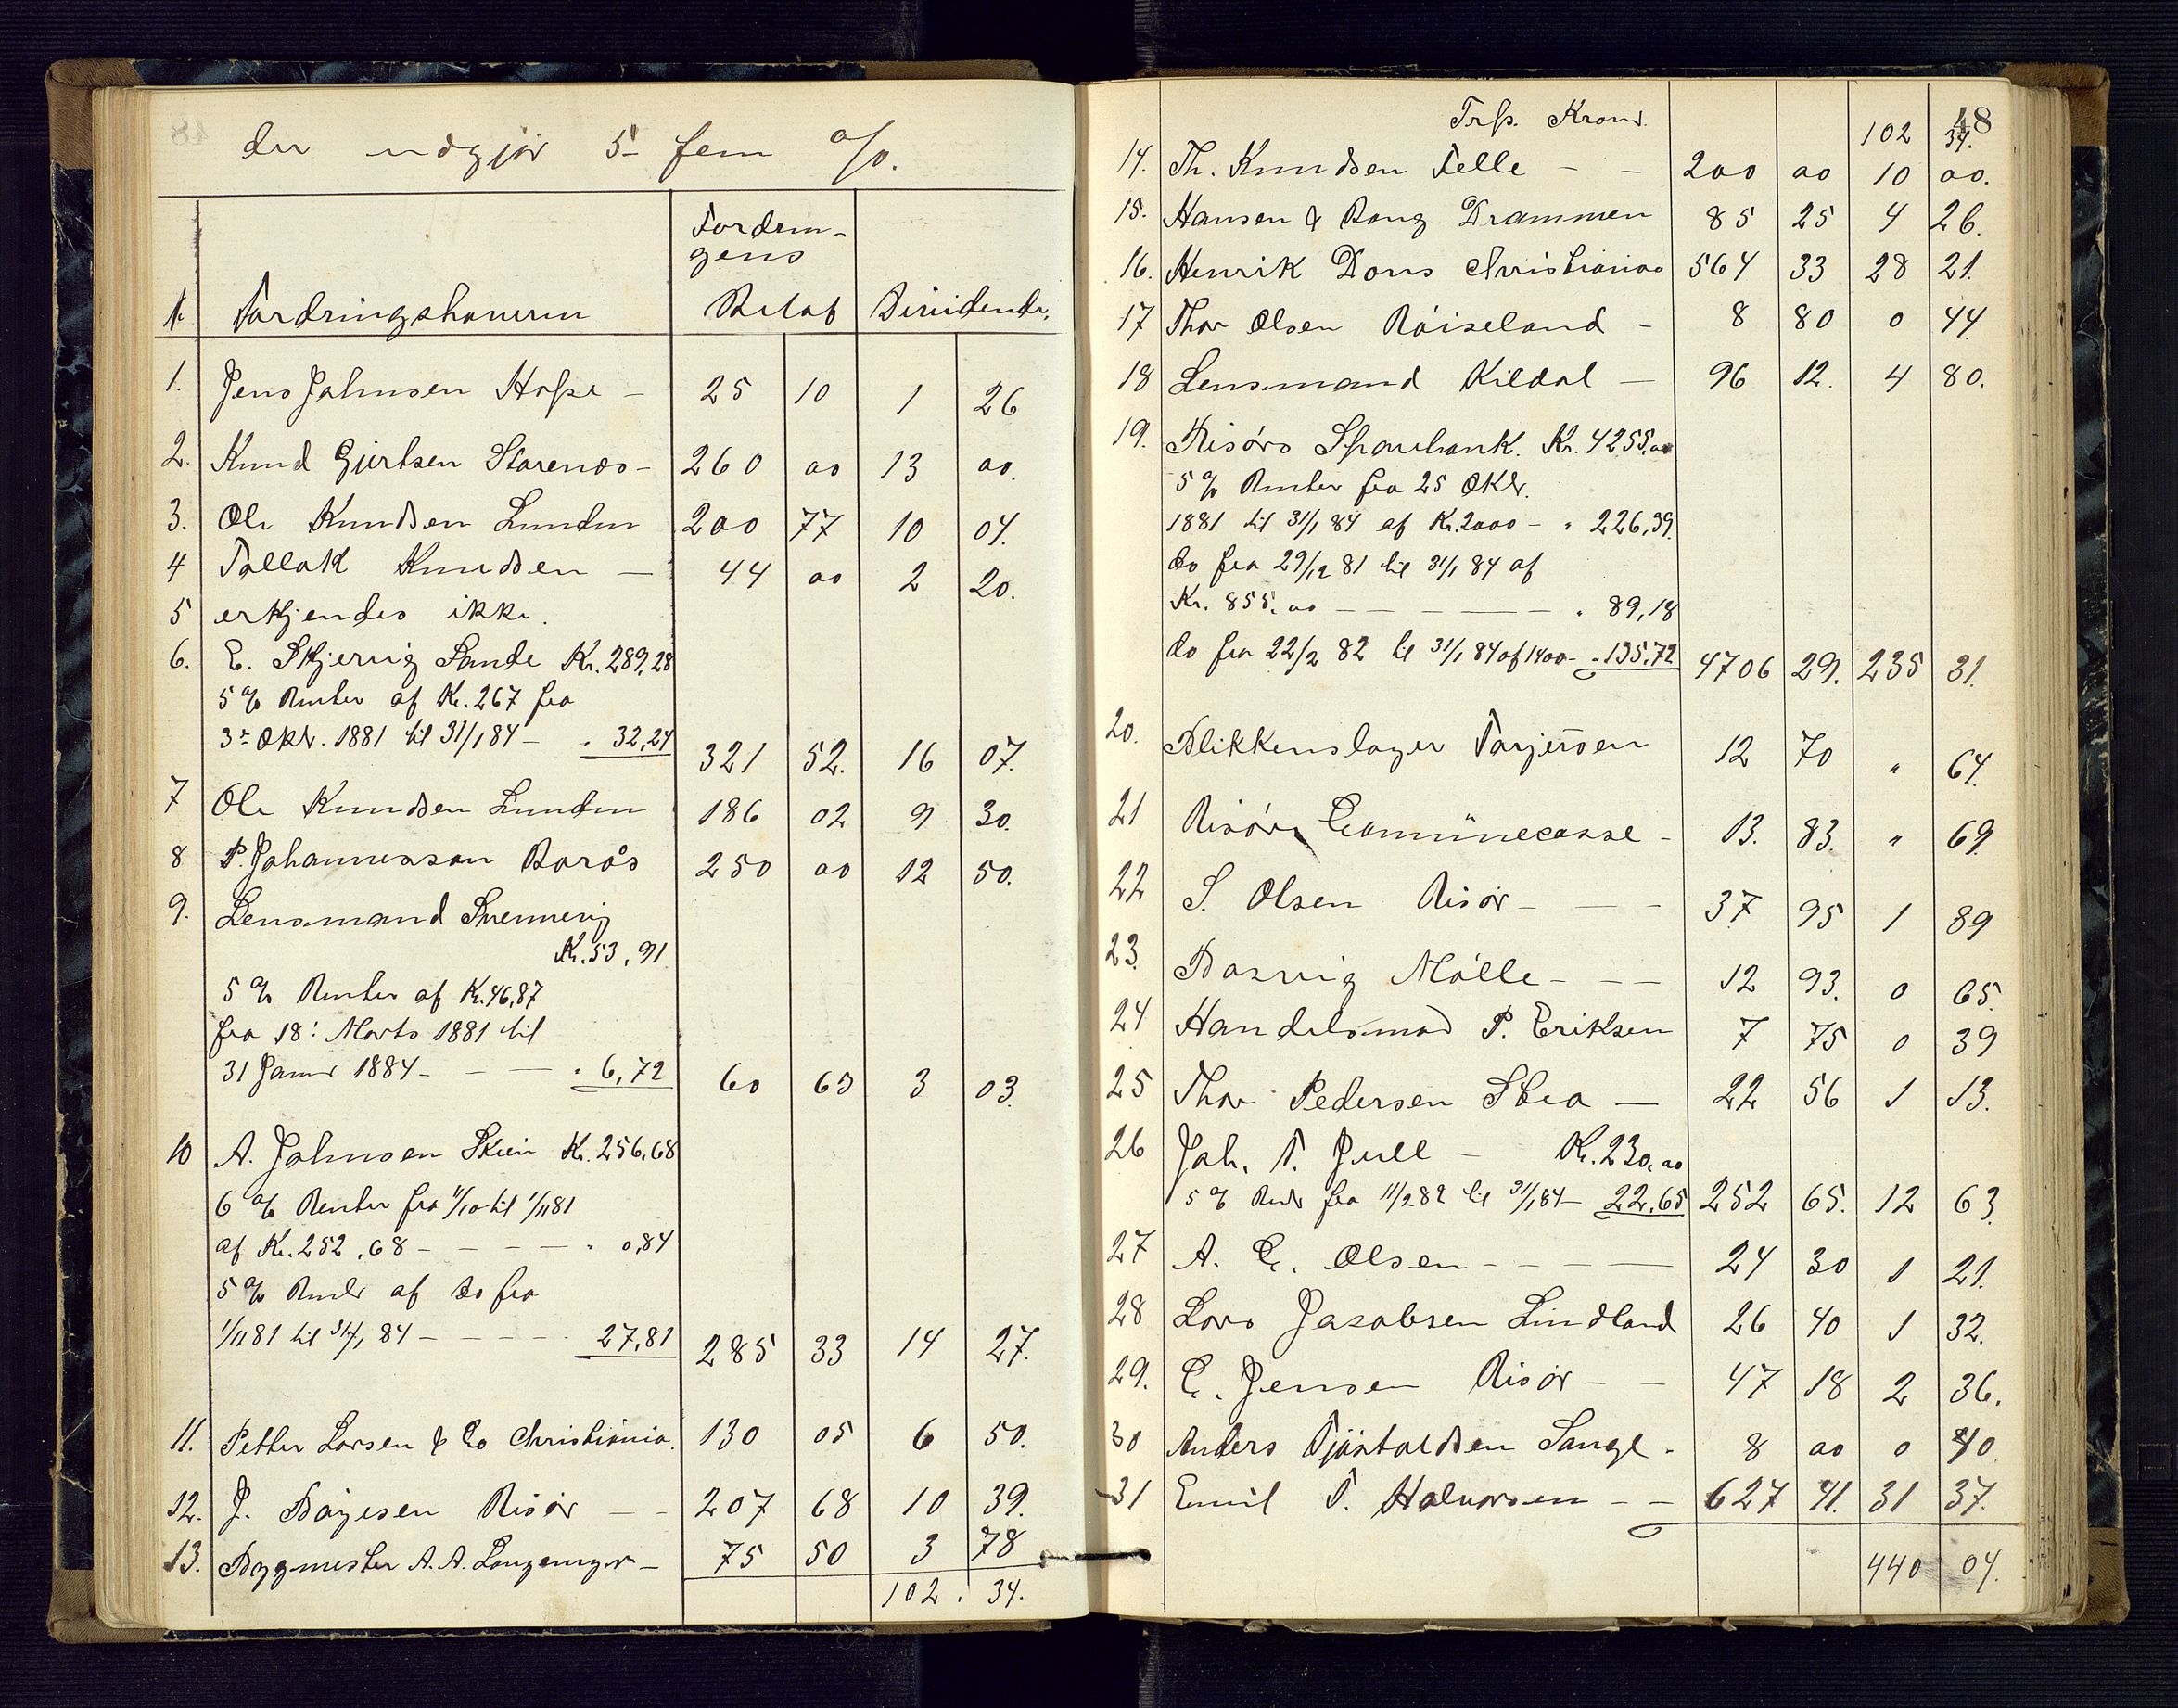 der udgjør 5 fem %.
№ Fordringshaveren Fordrin-
gens
Beløb Dividende.
1. Jens Johnsen Hope – 25 10 1 26
2. Knud Gjertsen Starenæs – 260 00 13 00.
3. Ole Knudsen Lunden 200 77 10 04.
4 Tallak Knudsen – 44 00 2 20.
5 erkjendes ikke.
6. E. Skjervig Sande Kr. 289,28
5 % Renter af Kr. 267 fra
3die Oktr. 1881 til 31/1 84 – „ 32,24 321 52. 16 07.
7 Ole Knudsen Lunden 186 02 9 30.
8 P. Johannesson Borås 250 00 12 50.
9. Lensmand
Kr. 53,91
5 % Renter af Kr. 46,87
fra 18: Marts 1881 til
31 Januar 1884 – – – „ 6,72 60 63 3 03.
10 A. Johnsen Skien Kr. 256,68
6 % Renter fra 1/10 til 1/11 81
af Kr. 252,68 – – – – „ 0,84
5 % Rentr af do fra
1/11 81 til 31/1 84 – – – – 27,81 285 33 14 27.
11. Petter Larsen & Co Christiania. 130 05 6 50.
12. J. Bøyesen Risør – – 207 68 10 39.
13. Bygmester A. A. – 75 50 3 78
102. 34.
48
Trsp. Kroner 102 34.
14. Th. Knudsen Felle – – 200 00 10 00.
15. Hansen & Bang Drammen 85 25 4 26.
16. Henrik Dons Christiania 564 33 28 21.
17 Thor Olsen Röiseland – 8 80 0 44.
18 Lensmand Kildal – 96 12. 4 80.
19. Risørs Sparebank. Kr. 4255,00
5 % Renter fra 25 Oktr.
1881 til 31/1 84 af Kr. 2000 – „ 226,39.
do fra 29/12 81 til 31/1 84 af
Kr. 855,00 – – – – – „ 89,18
do fra 22/2 82 til 31/1 84 af 1400 – „ 135,72 4706 29. 235 31.
20. Blikkenslager Torjussen 12 70 „ 64.
21 Risørs Comünecasse – 13. 83. „ 69.
22 S. Olsen Risør – – – 37 95 1 89
23. Bosvig Mölle – – – 12 93. 0 65.
24 Handelsmad P. Eriksen 7 75 0 39
25 Thor Pedersen Stea – 22 56 1 13.
26 Joh. T. Juell – Kr. 230,00
5 % Rentr fra 11/2 82 til 31/1 84 – 22,65 252 65. 12 63.
27 A. E. Olsen – – – – 24 30 1 21.
28 Lars Jacobsen Lindland 26 40 1 32.
29. E. Jensen Risør – – 47 18 2 36.
30 Anders Tjöstolvsen Sange – 8 00 0 40
31 Emil T. Halvorsen – – 627 41. 31 37.
440 04.